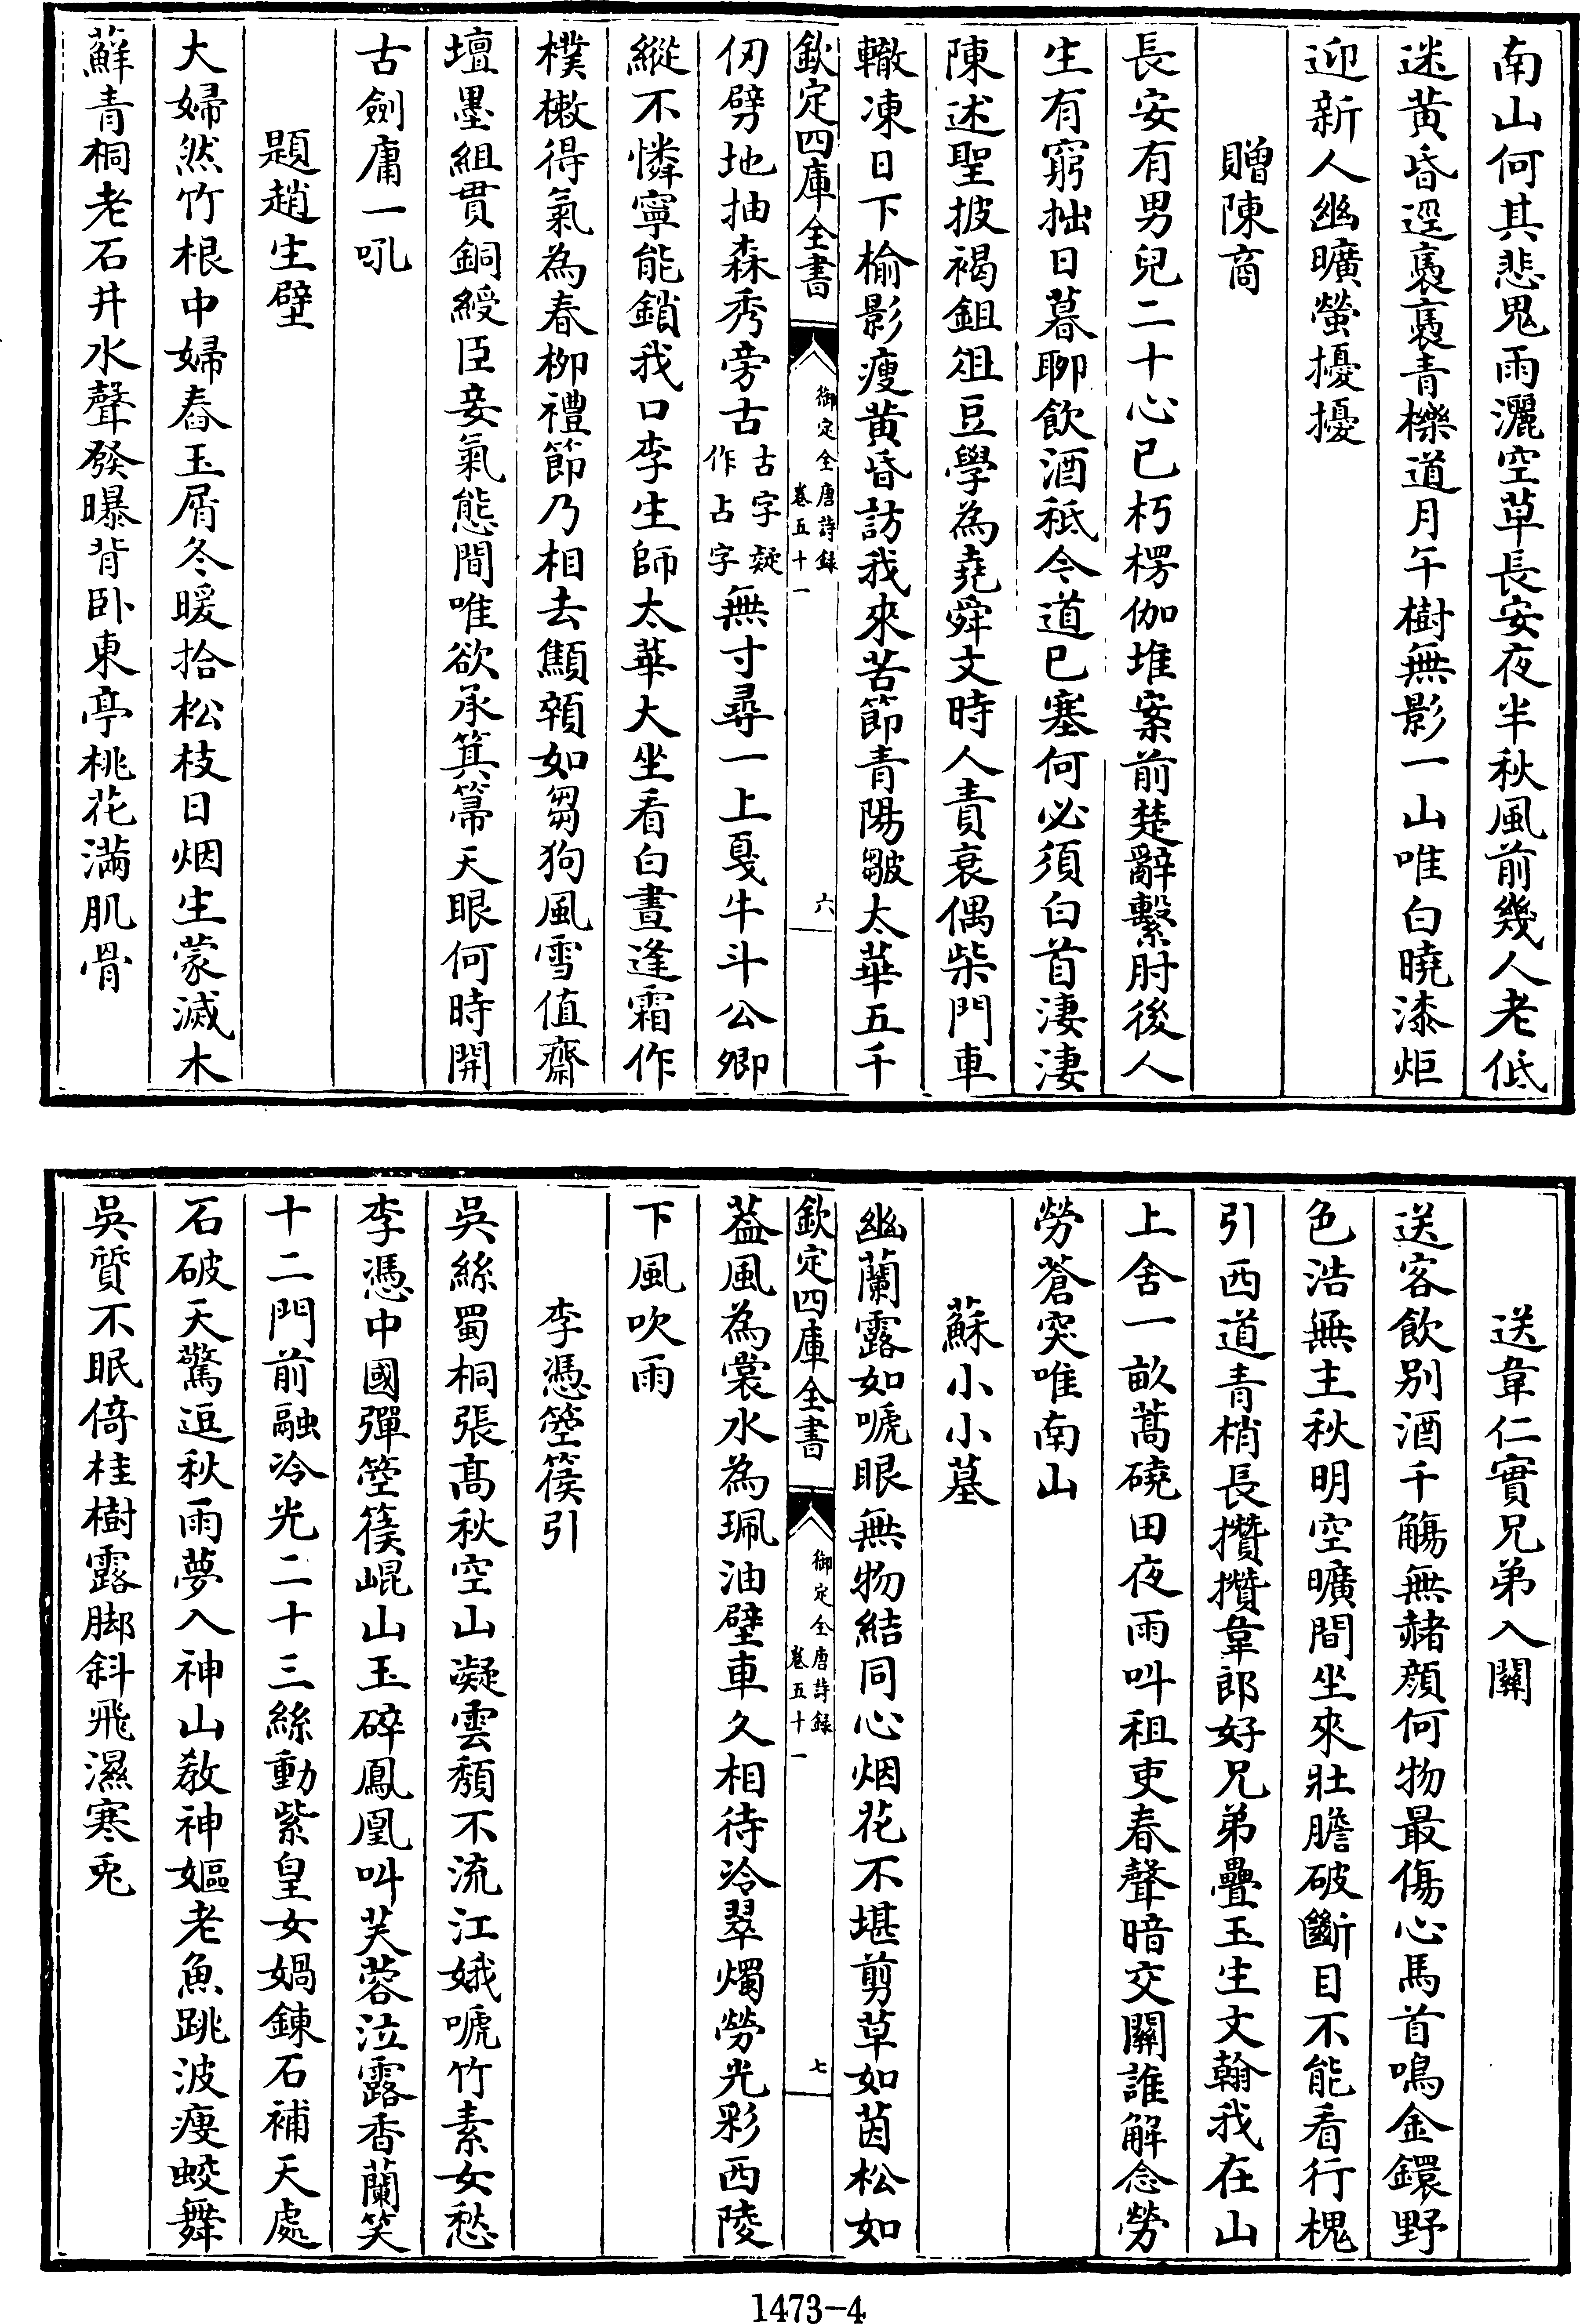 南山何其悲鬼雨灑空草長安夜半秋風前幾人老低
迷黄昏逕裊裊青櫟道月午樹無影一山唯白曉漆炬
迎新人幽曠螢擾擾
贈陳商
長安有男兒二十心已朽楞伽堆案前楚辭繫肘後人
生有窮拙日暮聊飲酒秪今道已塞何必須白首淒淒
陳述聖披褐鉏俎豆學為堯舜文時人責衰偶柴門車
轍凍日下榆影瘦黄昏訪我來苦節青陽皺太華五千
欽定四庫全書
御定全唐詩録
卷五十一
六
仞劈地抽森秀旁古
古字疑
作占字
無寸尋一上戛牛斗公卿
縱不憐寧能鎖我口李生師太華大坐看白晝逢霜作
樸樕得氣為春柳禮節乃相去顦顇如芻狗風雪值齋
壇墨組貫銅綬臣妾氣態間唯欲承箕箒天眼何時開
古劍庸一吼
題趙生壁
大婦然竹根中婦舂玉屑冬暖拾松枝日烟生蒙滅木
蘚青桐老石井水聲發曝背卧東亭桃花滿肌骨
送韋仁實兄弟入關
送客飲别酒千觴無赭顔何物最傷心馬首鳴金鐶野
色浩無主秋明空曠間坐來壯膽破斷目不能看行槐
引西道青梢長攢攢韋郎好兄弟疊玉生文翰我在山
上舍一畝蒿磽田夜雨叫租吏春聲暗交關誰解念勞
勞蒼突唯南山
蘇小小墓
幽蘭露如嗁眼無物結同心烟花不堪剪草如茵松如
欽定四庫全書
御定全唐詩録
卷五十一
七
葢風為裳水為珮油壁車久相待冷翠燭勞光彩西陵
下風吹雨
李憑箜篌引
吳絲蜀桐張髙秋空山凝雲頽不流江娥嗁竹素女愁
李憑中國彈箜篌崐山玉碎鳳凰叫芙蓉泣露香蘭笑
十二門前融冷光二十三絲動紫皇女媧鍊石補天處
石破天驚逗秋雨夢入神山教神嫗老魚跳波瘦蛟舞
吳質不眠倚桂樹露脚斜飛濕寒兎
1473-4